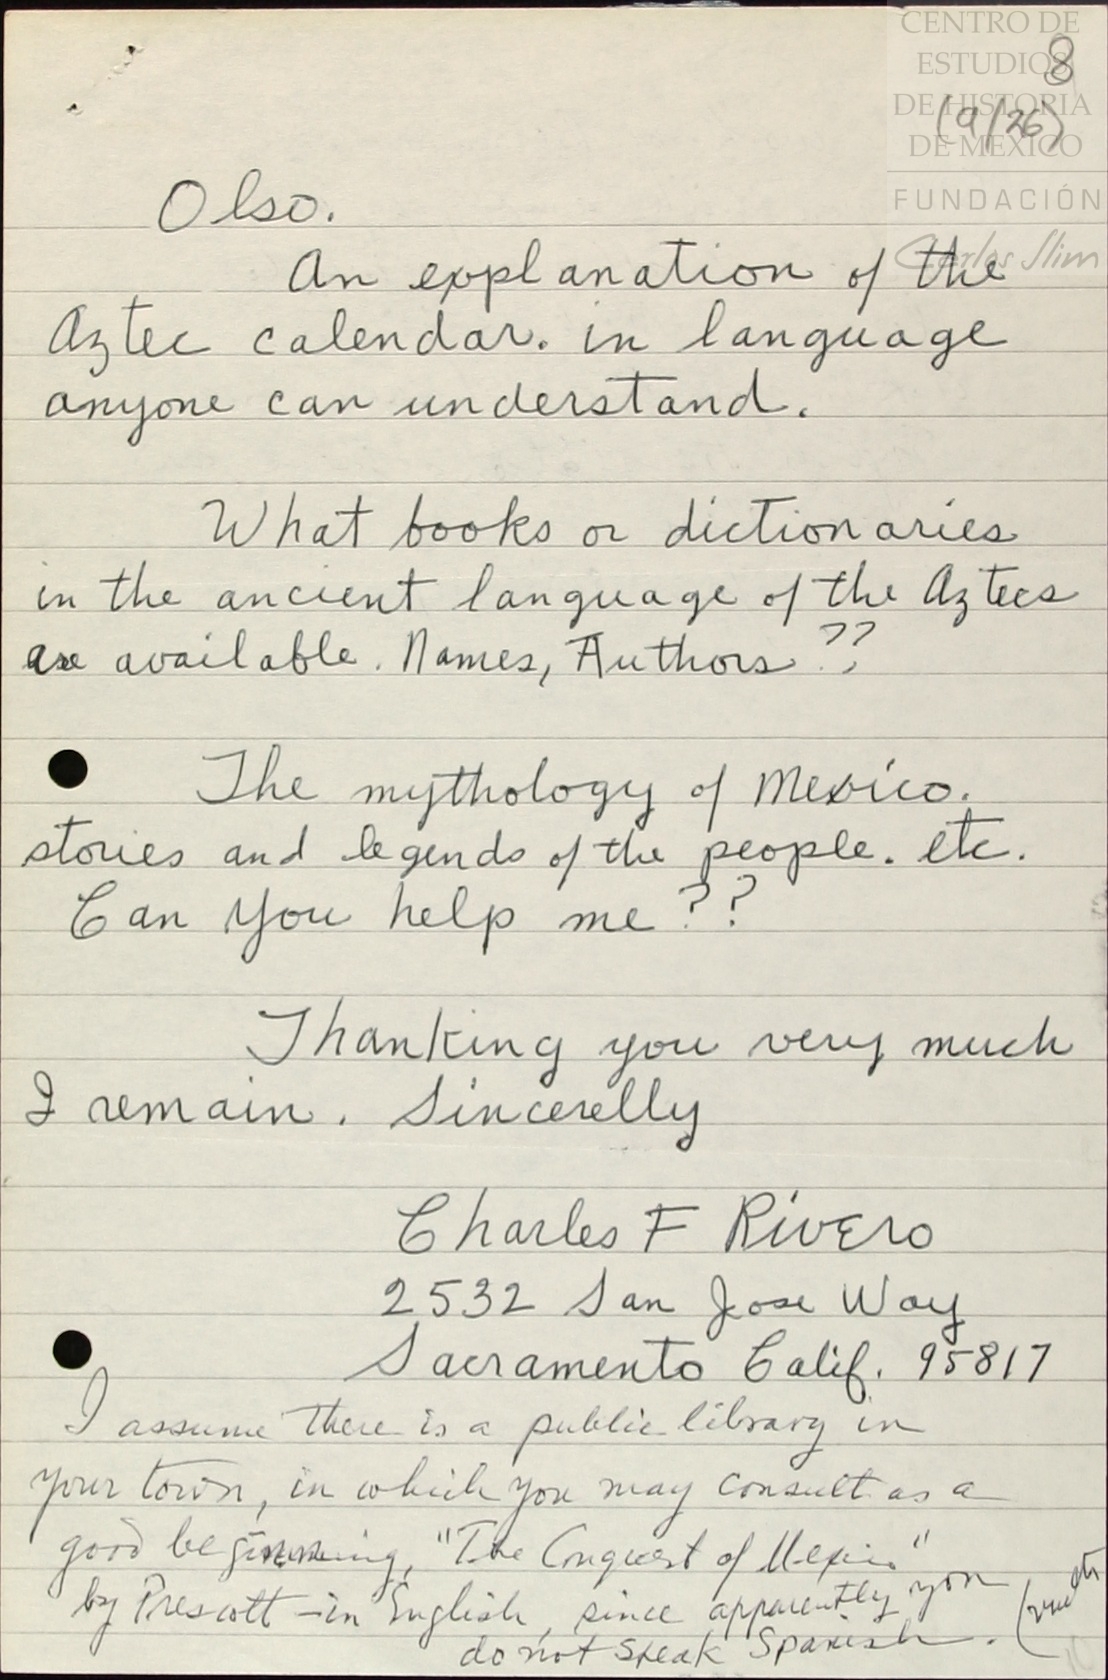 CENTRO DE
ESTUDIOS
DE HISTORIA
DE MÉXICO
FUNDACIÓN
Carlos Slim
8
(9/26)
Also.
An explanation of the
Aztec calendar. in language
anyone can understand.
What books or dictionaries
in the ancient language of the Aztecs
are available. Names, Authors ??
The mythology of Mexico.
stories and legends of the people. etc.
Can you help me ??
Thanking you very much
I remain. Sincerelly
Charles F Rivero
2532 San Jose Way
Sacramento Calif. 95817
I assume there is a public library in
your town, in which you may consult as a
good beginning, "The Conquest of Mexico"
by Prescott – in English, since apparently you
do not speak Spanish.